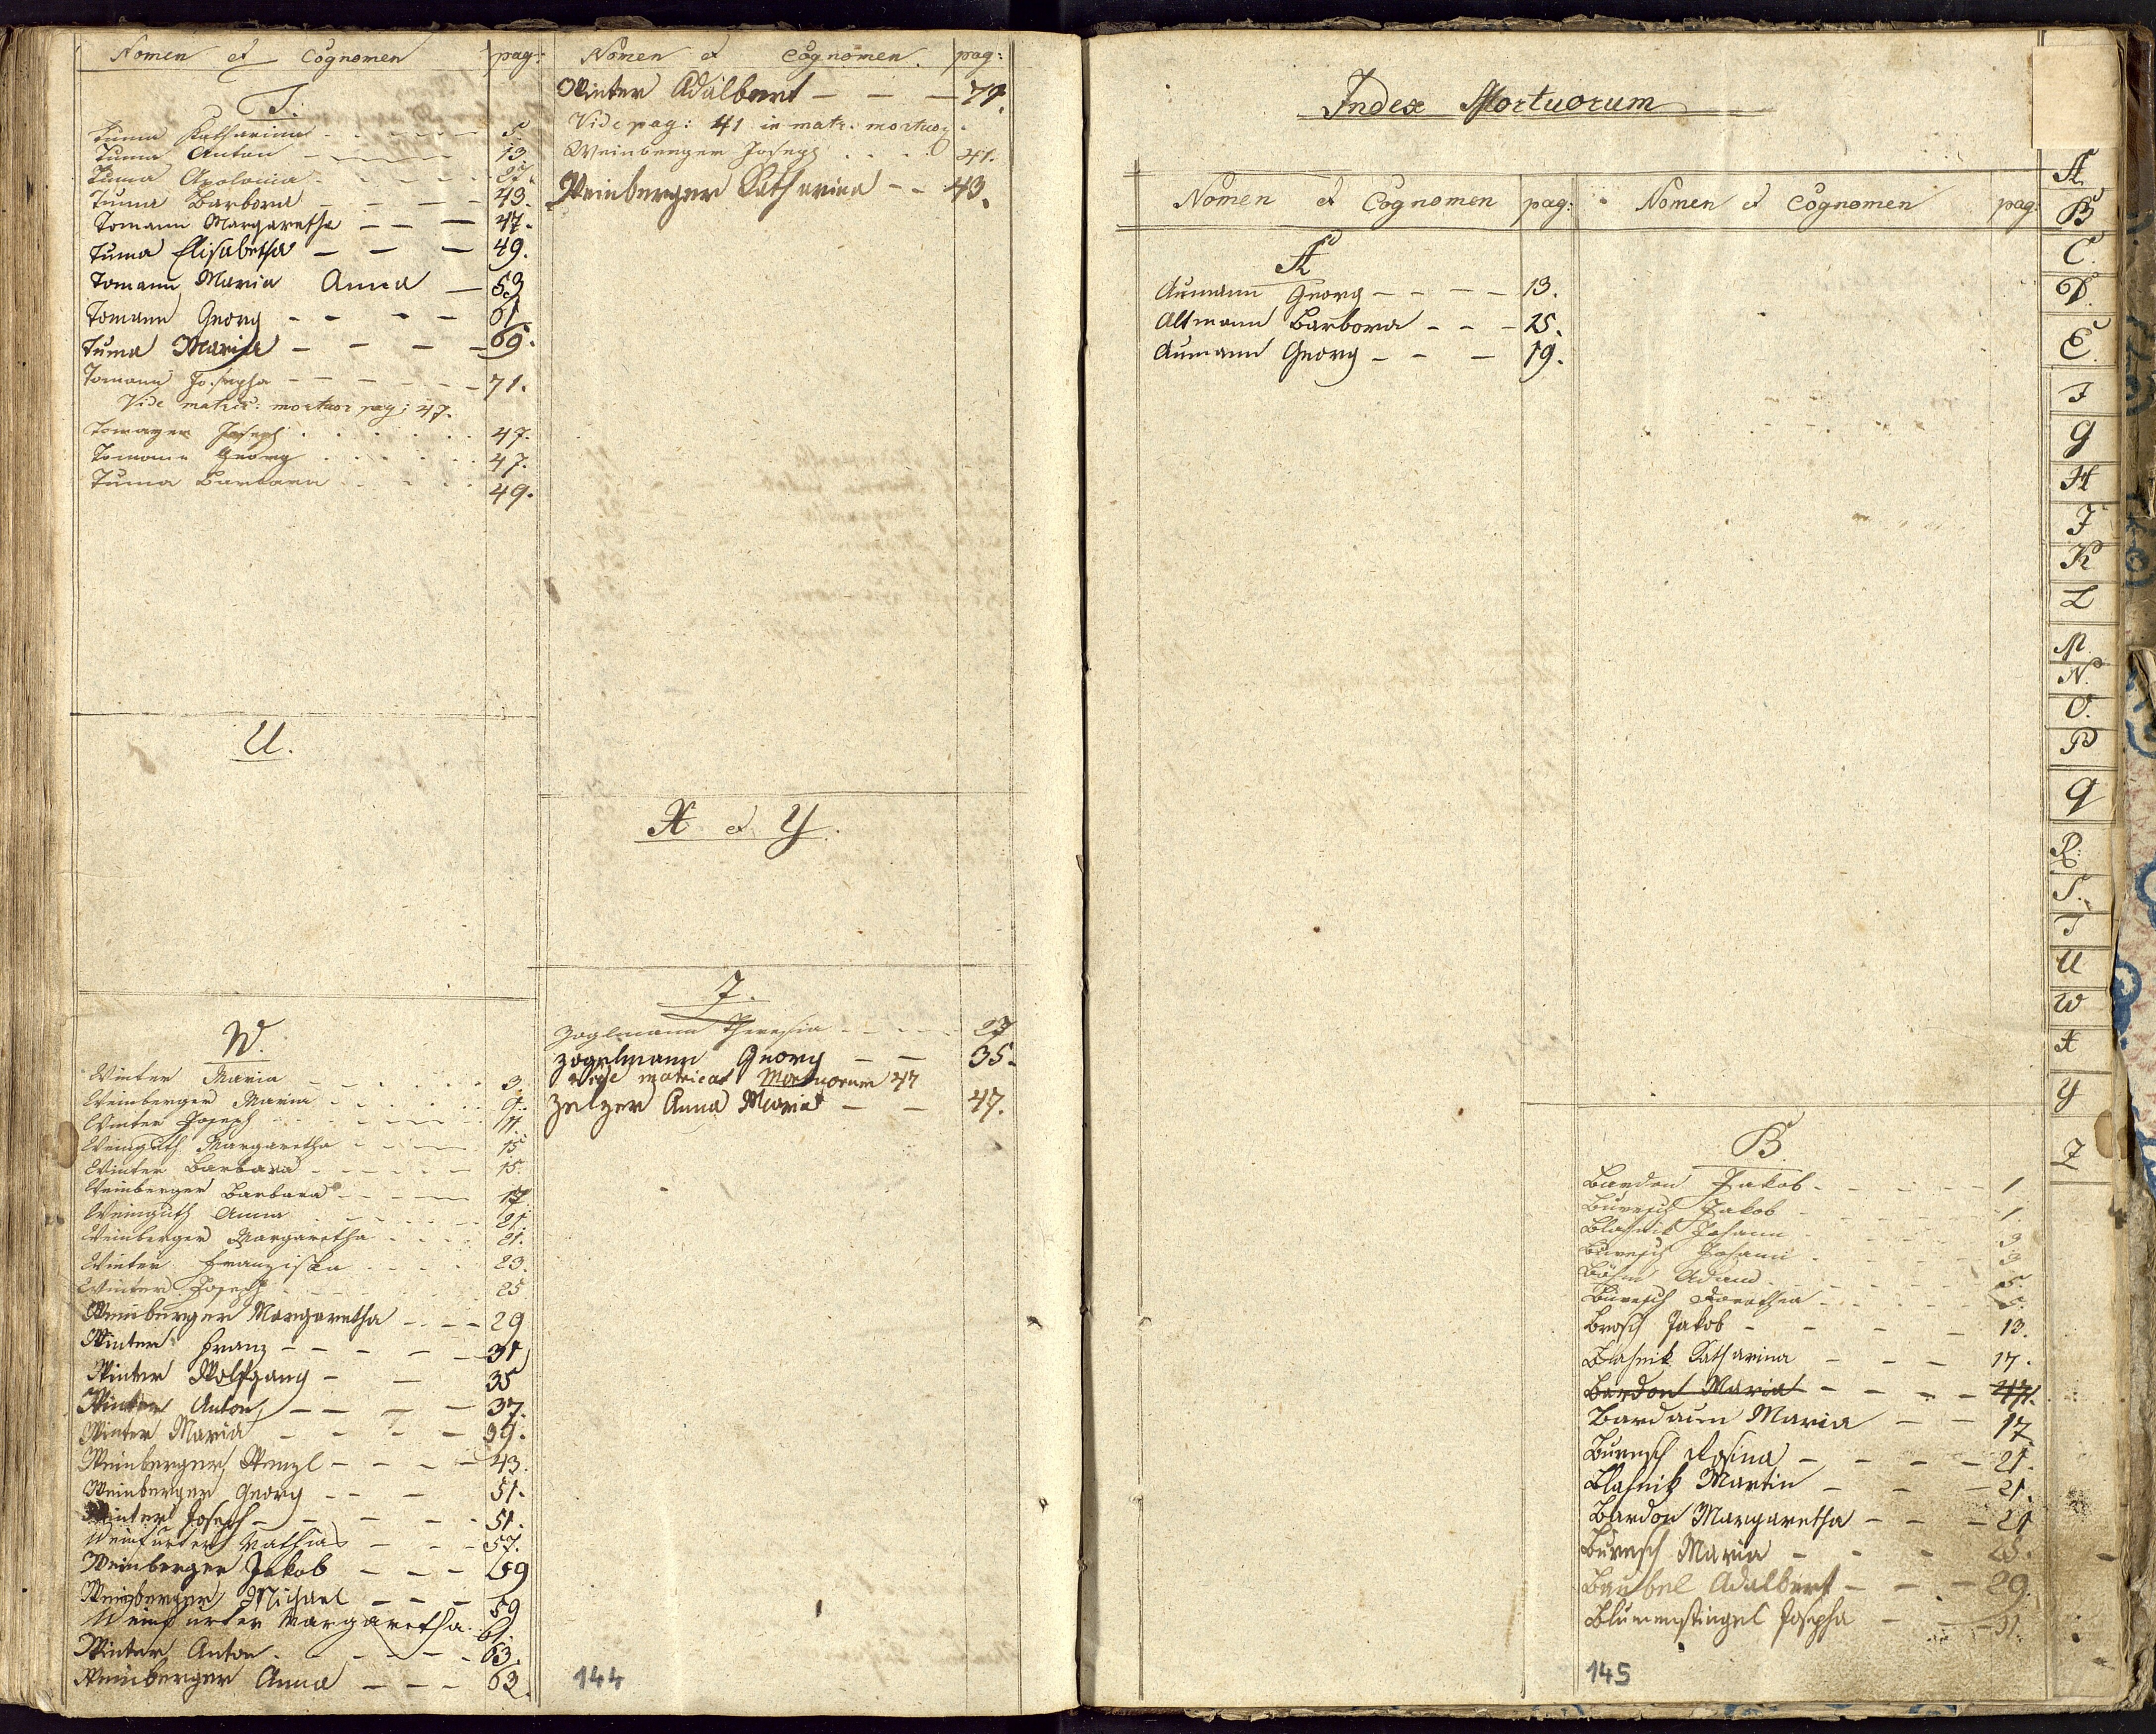 Nomen et Cognomen pag:
T.
Tuma Katharina 5.
Tuma Anton 13.
Tuma Apolonia 27.
Tuma Barbora 43.
Tomann Margaretha 47.
Tuma Elisabetha 49.
Tomann Maria Anna 53
Tomann Georg 61.
Tuma Maria 69.
Tomann Josepha 71.
Vide matric: mortuor pag: 47.
Joseph 47.
Tomann Georg 47.
Tuma Barbara 49.
U.
W.
Winter Maria 3.
Weinberger Maria 9.
Winter Joseph 11.
Weinguth Margaretha 15
Winter Barbara 15.
Weinberger Barbara 17.
Weinguth Anna 21.
Weinberger Margaretha 21.
Winter Franziska 23.
Winter Joseph 25
Weinberger Margaretha 29
Winter Franz 31
Winter Wolfgang 35
Winter Anton 37.
Winter Maria 39.
Weinberger Wenzl 43.
Weinberger Georg 51.
Winter Joseph 51.
Weinfurter Mathias 57.
Weinberger Jakob 59
Weinberger Michael 59
Weinfurter Margaretha 61.
Winter Anton 63.
Weinberger Anna 63.
Nomen et Cognomen. pag:
Winter Adalbert 79.
Vide pag: 41 in matr. mortuor.
Weinberger Joseph 41.
Weinberger Katharina 43.
X et Y.
Z.
Zoglmann Theresia 27
Zogelmann Georg 35.
Vide matricat Mortuorum 47
Zelzer Anna Maria 47.
144
Index Mortuorum
Nomen et Cognomen pag:
A
Aumann Georg 13.
Altmann Barbora 25.
Aumann Georg 19.
Nomen et Cognomen pag:
B.
Bardon Jakob 1
Buresch Jakob 1.
Blahnik Johann 3
Buresch Johann 3
Böhm Adam 5.
Buresch Dorothea 5.
Brosch Jakob 13.
Blahnik Katharina 17.
Bardon Maria 47.
Bardaun Maria 17
Buresch Rosina 21.
Blahnik Martin 21.
Bardon Margaretha 21
Buresch Maria 25.
Baubel Adalbert 29.
Blumenstingel Josepha 31.
145
A
B
C.
D.
E.
F
G
H
I
K
L
M.
N.
O.
P
Q
R.
S.
T
U
W
X
Y
Z